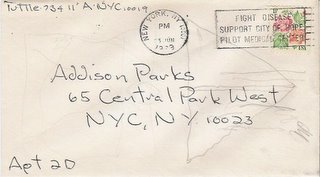 Tuttle-734 11 A-NYC, 10019
NEW YORK, NY
PM
1979
FIGHT DISEASE
SUPPORT CITY OF HOPE
PILOT MEDICAL
Addison Parks
65 Central Park West
NYC, NY 10023
Apt 2D